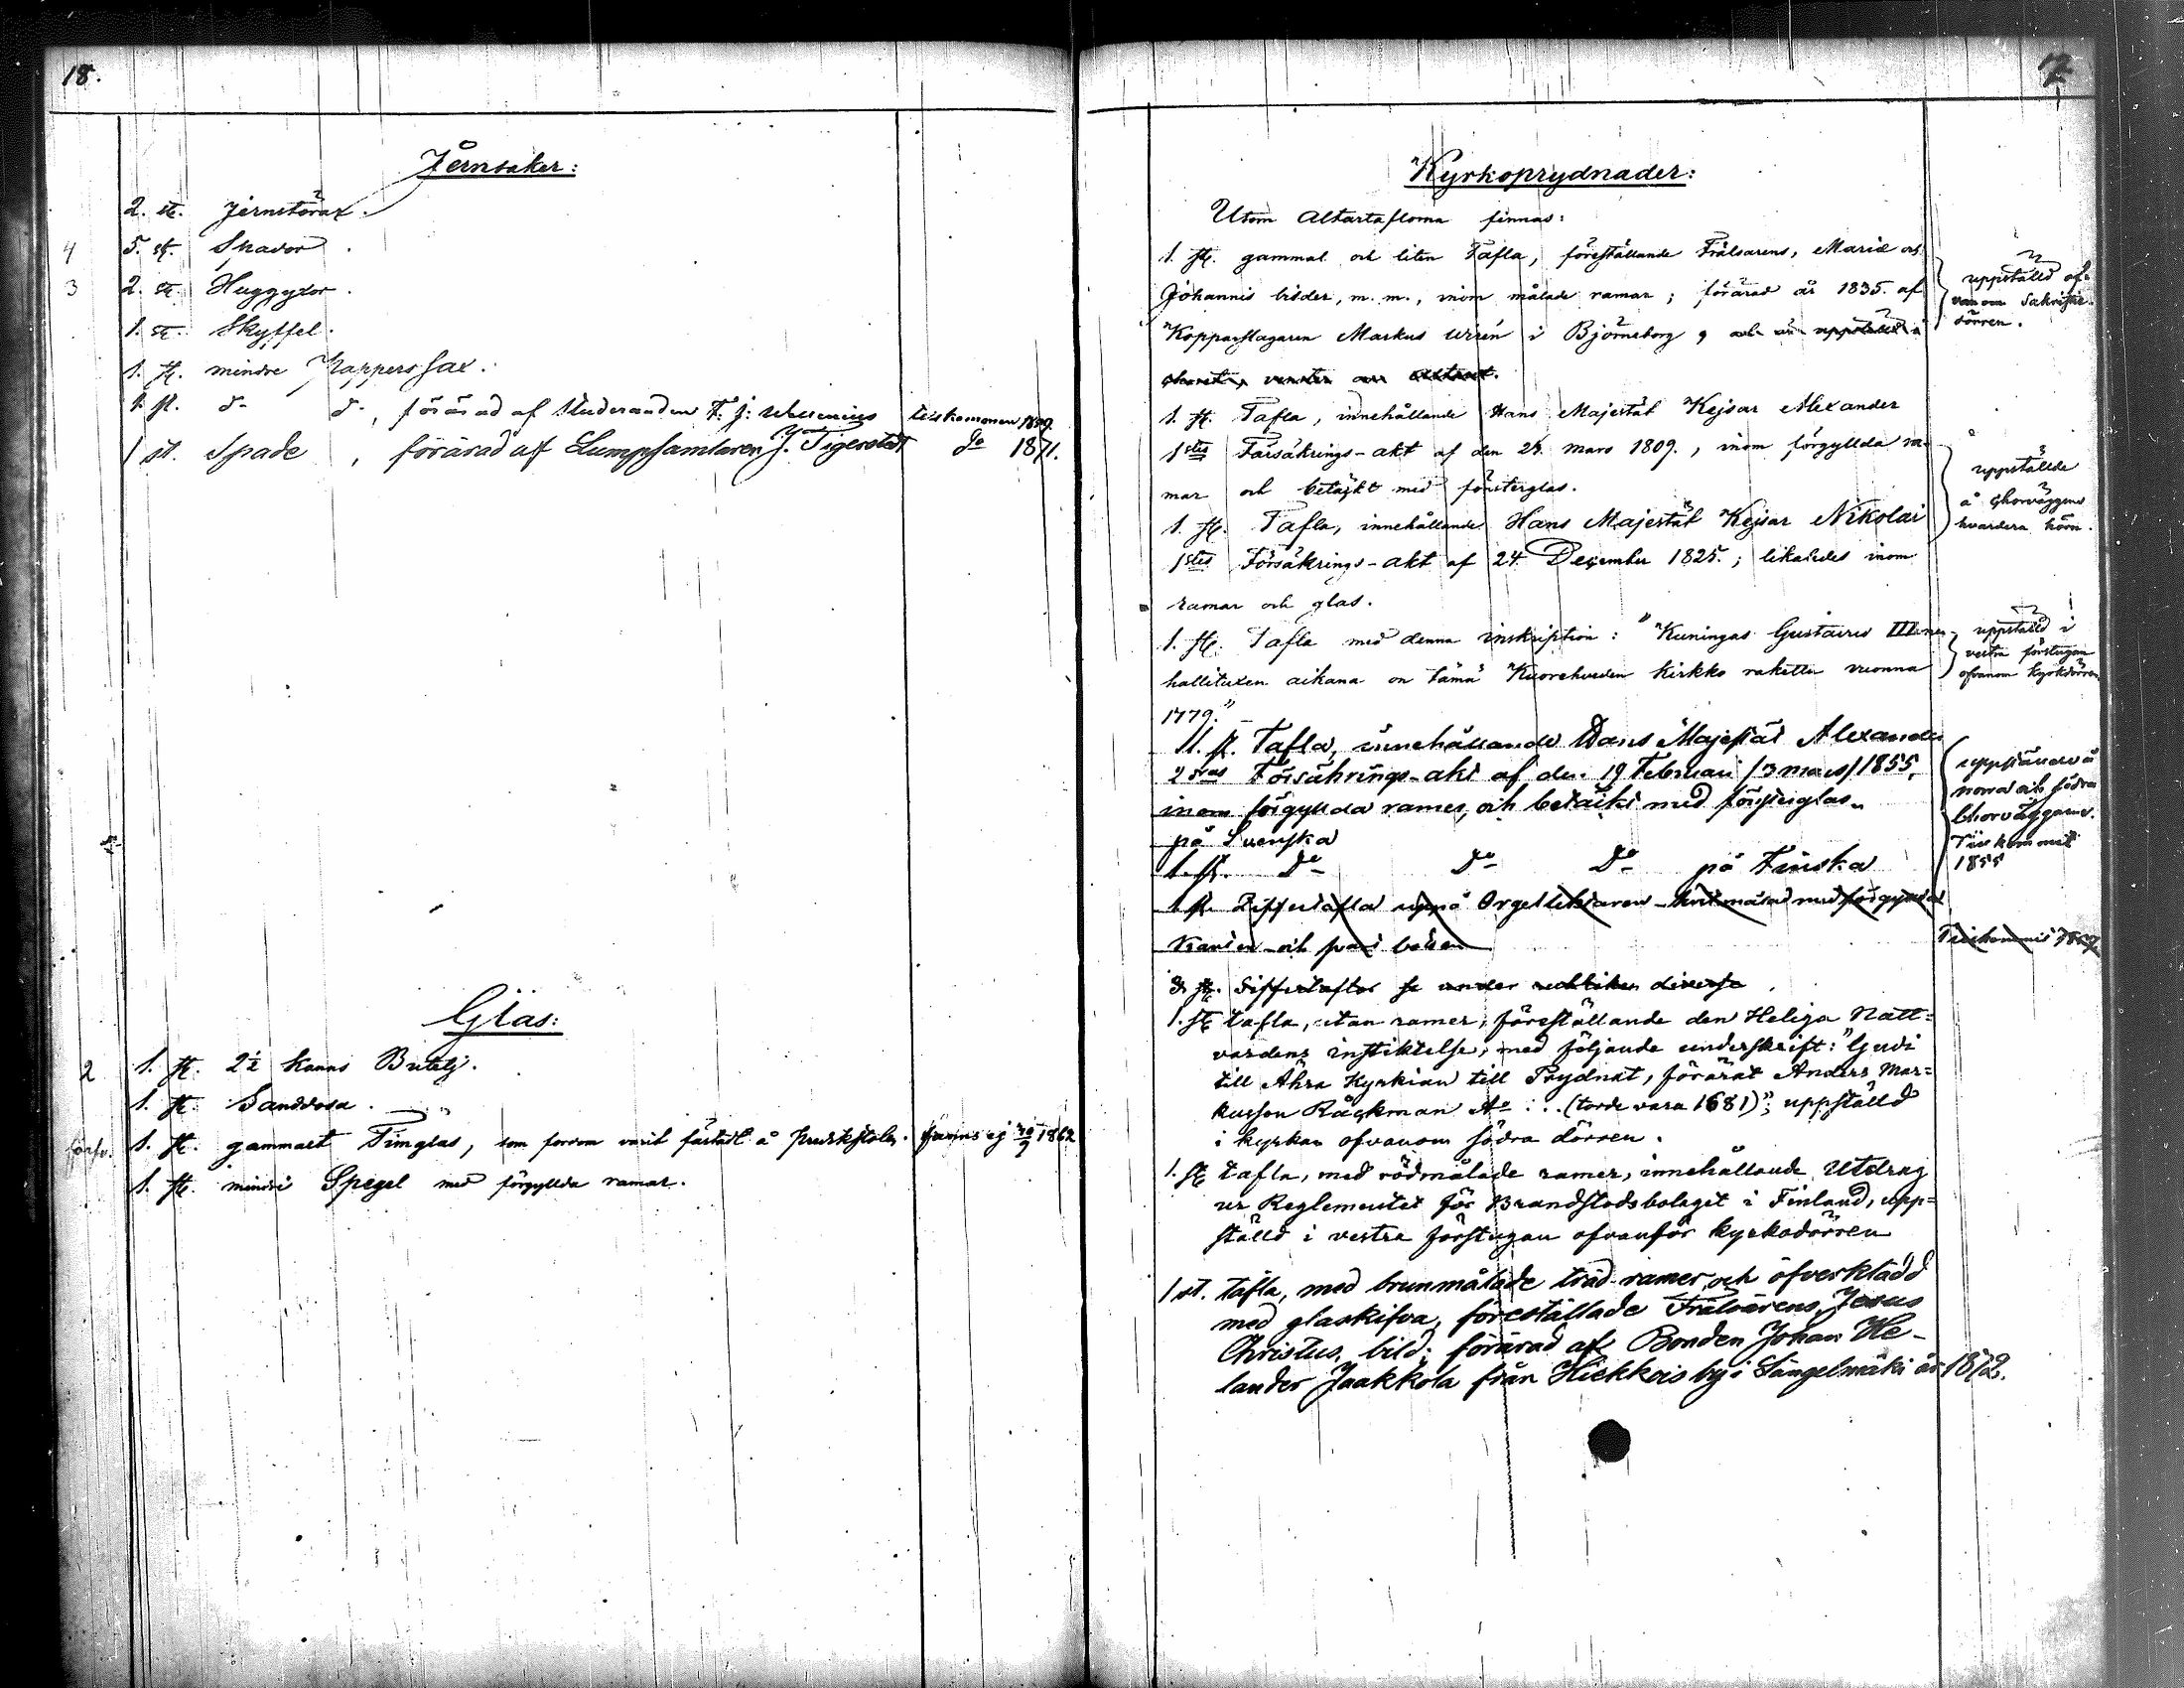 18.
Jernsaker:
2. st. Jernstörar.
4 5. st. Spador.
3 2. st. Huggyxor.
1. st. Skyffel.
1. st. mindre Papperssax.
1. st. d- d-, förärad af Studeranden F. J. tillkommen
1 st. Spade, förärad af Lumpsamlaren J. Tigerstedt do 1871.
Glas:
2 1. st. 2½ kanns Butelj.
1. st. Sanddosa.
1. st. gammalt Timglas, som forrom varit fästadt å Predikstolen. finns ej 1862
1. st. mindre Spegel med förgyllda ramar.
7
Kyrkoprydnader:
Utom Altartaflorna finnas:
1. st. gammal och liten Tafla, föreställande Frälsarens, Mariæ och
Johannis bilder, m. m., inom målade ramar; förärad år 1835. af
Kopparslagaren Markus Wirén i Björneborg, och är uppstäld i
choret, venster om altaret.
uppställd of-
vanom Sakristie
dörren.
1. st. Tafla, innehållande Hans Majestät Kejsar Alexander
1stes Försäkrings-akt af den mars 1809., inom förgyllda ra-
mar och betäckt med fönsterglas.
1. st. Tafla, innehållande Hans Majestät Kejsar Nikolai
1stes Försäkrings-akt af 24. December 1825.; likaledes inom
ramar och glas.
uppställde
å Chorväggens
hvardera hörn.
1. st. Tafla med denna inskription: "Kuningas Gustavus III:nen
hallituxen aikana on tämä Kuorehveden Kirkko rakettu vuonna
1779."
uppställd i
vestra förstugan
ofvanom kyrkdörren
1. st. Tafla, innehållande Hans Majestät Alexander
2dras Försäkrings-akt af den 19 Februari (3 mars) 1855,
inom förgyllda ramer, och betäckt med fönsterglas.
på Svenska
1. st. Do Do Do på Finska
norra och södra
Chorväggarne.
Tillkommit
1855
1 st. Ziffertafla uppå Orgelläktaren - hvitmålad med förgyllda
Kanten och
Tillkommit
3 st. Siffertaflor se under rubriken diverse
1. st tafla, utan ramer, föreställande den Heliga Natt=
vardens instiktelse, med följande underskrift: "Gudi
till Ähra Kyrkian till Prydnat, förärat Anders Mar=
kusson Räckman Ao ... (torde vara 1681)"; uppställd
i kyrkan ofvanom södra dörren.
1. st tafla, med rödmålade ramer, innehållande Utdrag
ur Reglementet för Brandstodsbolaget i Finland, upp=
ställd i vestra förstugan ofvanför kyrkodörren
1 st. tafla, med brunmålade träd-ramer och öfverklädd
med glasskifva, föreställade Frälsarens, Jesus
Christus, bild; förärad af Bonden Johan He-
lander Jaakkola från Hiekkois by i Längelmäki år 1872.